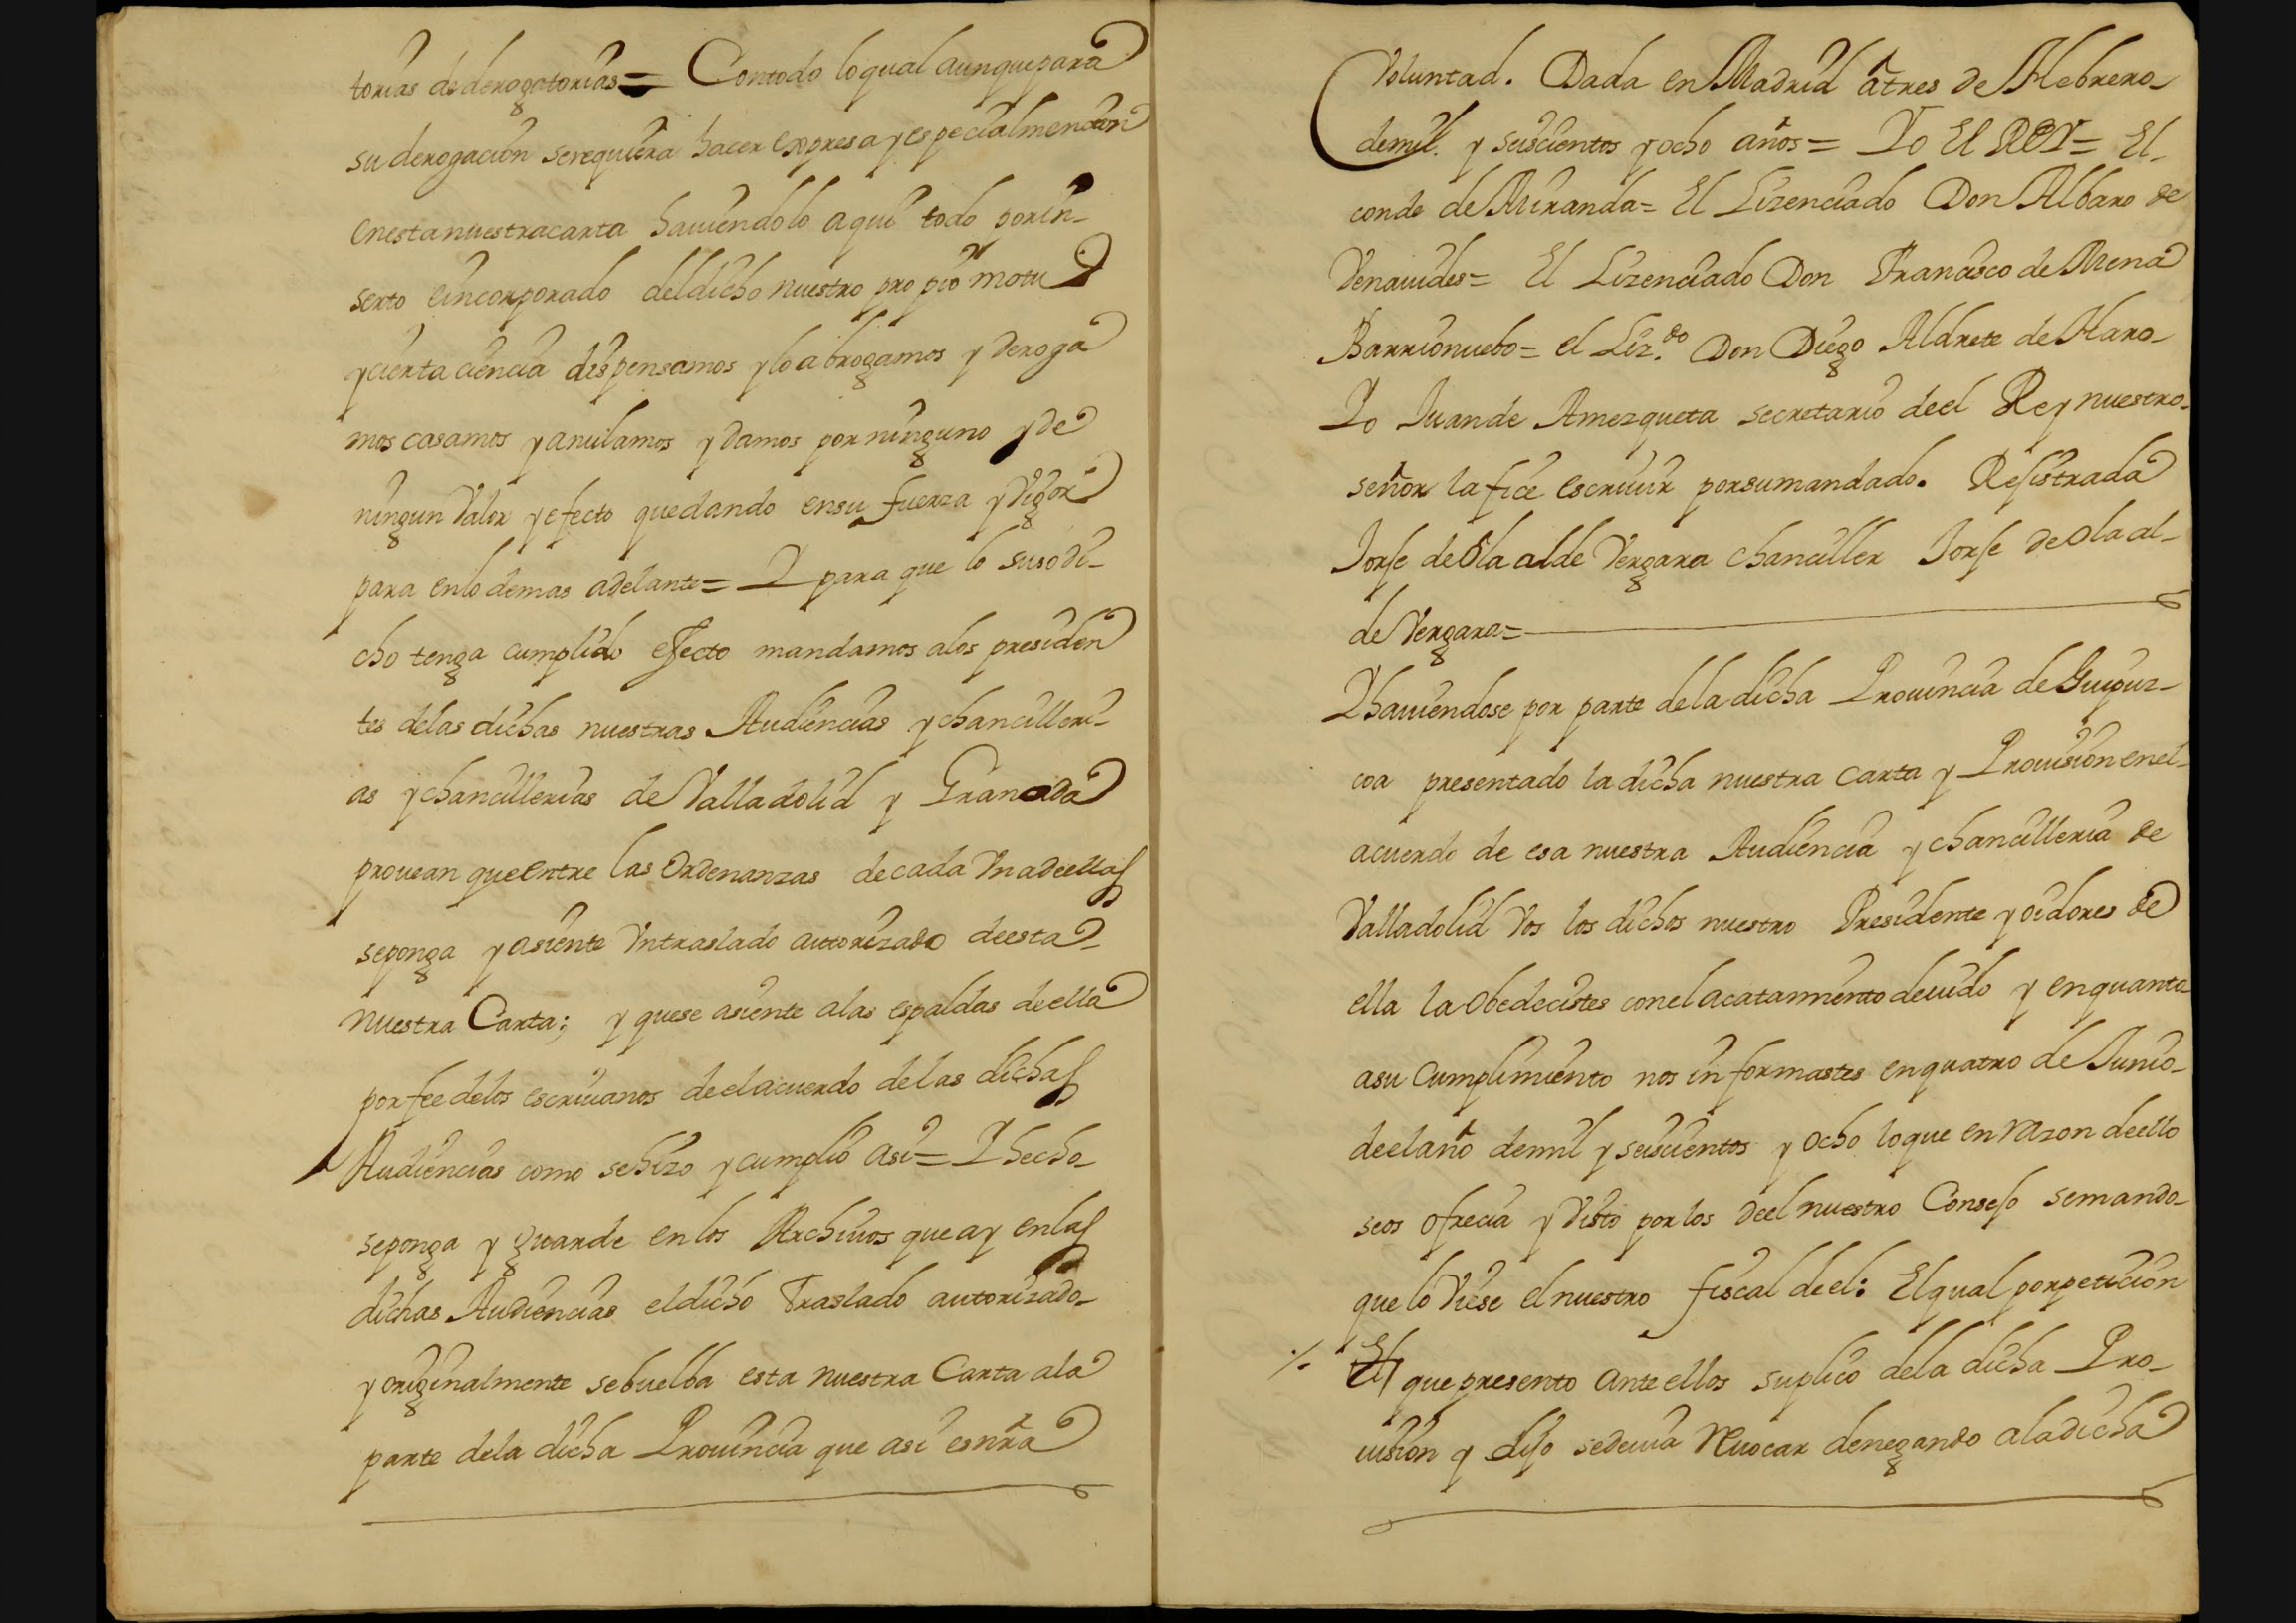 torias de derogatorias= Contodo loqual aunquepara
su derogacion serequiera hacer expresa y especialmencion
enestanuestracarta haviendolo aqui todo porin-
serto eincorporado deldicho nuestro propio motu
ycierta ciencia dispensamos yloabrogamos y deroga
mos casamos yanulamos ydamos porninguno yde
ningun Valor yefecto quedando ensu fuerza yVigor
para enlodemas adelante= Y para que lo susodi-
cho tenga cumplido efecto mandamos alos presiden
tes delas dichas nuestras Audiencias ychancilleri-
as ychancillerias de Valladolid y Granada
provean queentre las Ordenanzas decada Vnadeellas
seponga yasiente Vntraslado autorizado deesta
nuestra Carta; y quese asiente alas espaldas deella
porfee delos escrivanos deelacuerdo delas dichas
Audiencias como sehizo ycumplio asi= Y hecho-
seponga y guarde enlos Archivos queay enlas
dichas Audiencias eldicho Traslado autorizado-
yoriginalmente sebuelba esta nuestra Carta ala
parte dela dicha Provincia que asi esnr̃a
Voluntad. Dada en Madrid atres de Hebrero-
demil y seiscientos yocho años= Yo El REY= El-
conde deMiranda= El Lizenciado Don Albaro de
Venavides= El Lizenciado Don Francisco de Mena
Barrionuebo= el Liz.do Don Diego Aldrete de Haro-
Yo Juande Amezqueta secretario deel Rey nuestro-
señor la fice escrivir porsumandado. Rejistrada
Jorje deOlaalde Vergara chanciller Jorje deOlaal-
de Vergara=
Yhaviendose por parte deladicha Provincia de Guipuz-
coa presentado ladicha nuestra Carta y Provision enel-
acuerdo de esa nuestra Audiencia y chancilleria de
Valladolid Vos los dichos nuestro Presidente yoidores de
ella laobedecistes conelacatamiento devido y enquanto
asu Cumplimiento nos informastes enquatro de Junio-
deelaño demil y seiscientos y ocho loque enrazon deello
seos ofrecia yVisto porlos deelnuestro Consejo semando-
que lo Viese elnuestro fiscal deel: Elqual porpeticion
que presento anteellos suplico dela dicha Pro-
vision y dijo sedevia Revocar denegando aladicha